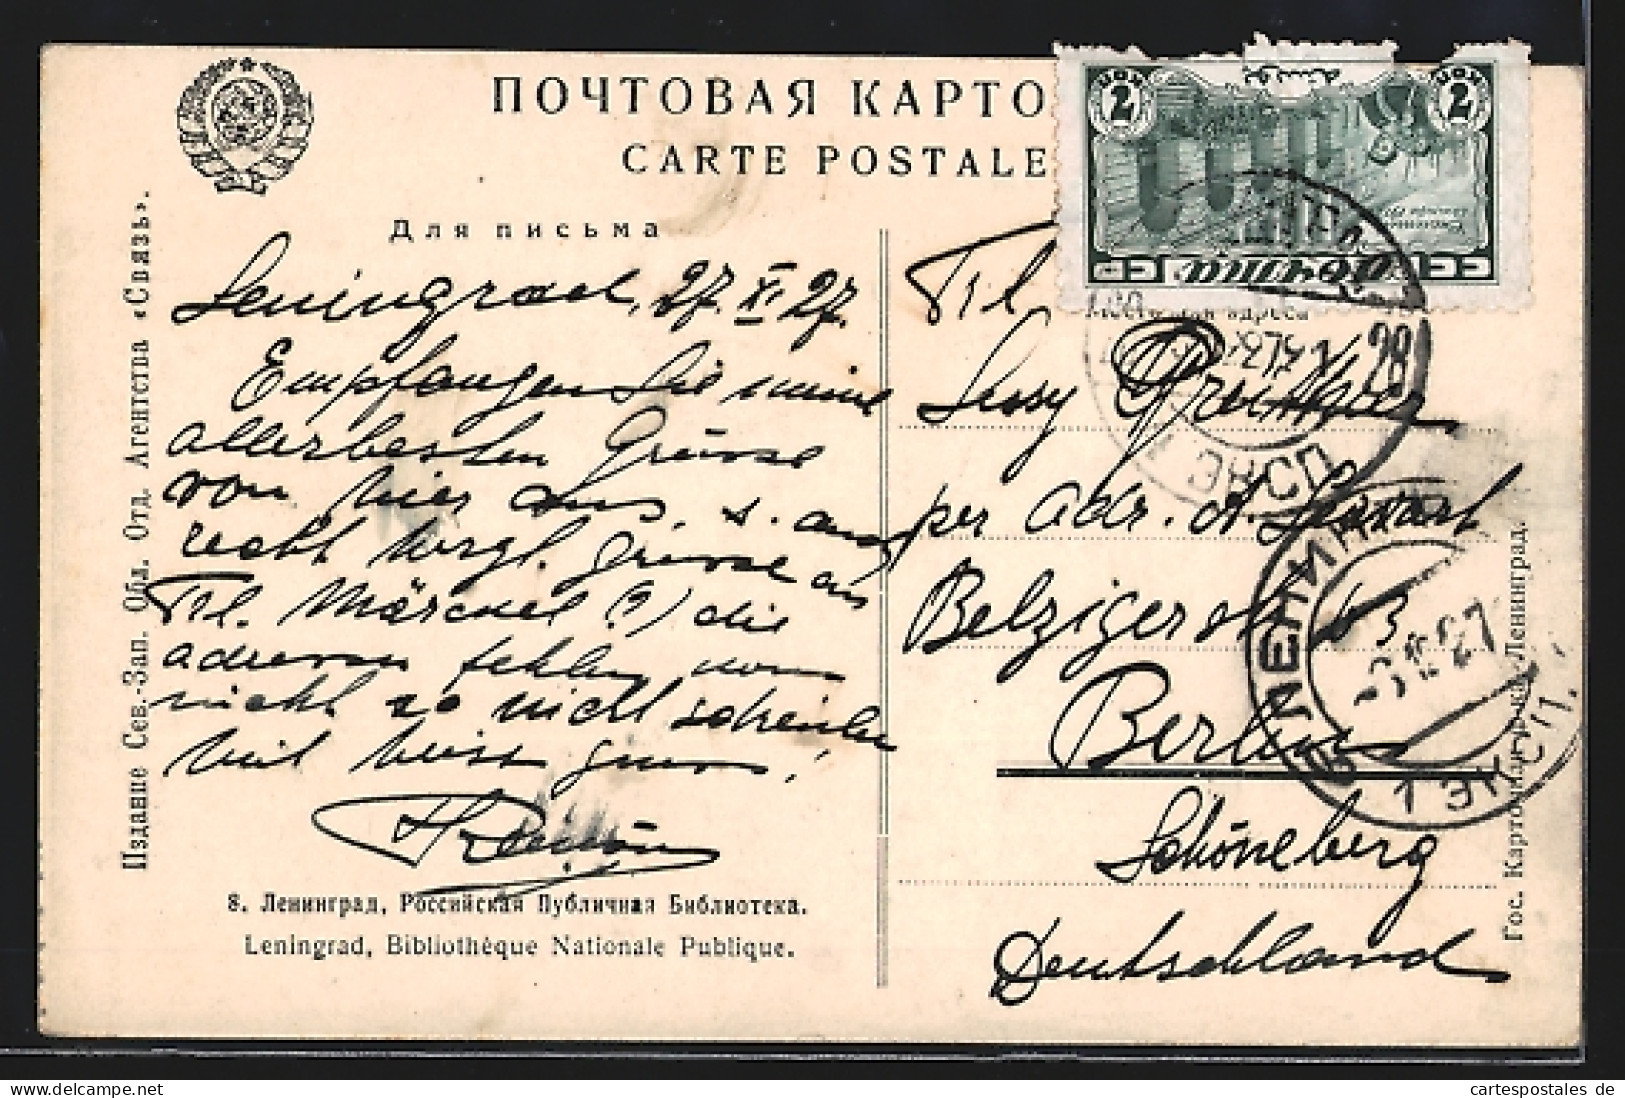 ПОЧТОВАЯ КАРТО
CARTE POSTALE
Для письма
Leningrad, 27. XI. 27.
Empfangen Sie meine
allerbesten Grüsse
von hier aus, u. auch
recht herzl. Grüsse an
Frl. Märckel (?) die
adressen fehlen
nicht so nicht schreiben
Mit besten Gruss!
8. Ленинград, Российская Публичная Библиотека.
Leningrad, Bibliothèque Nationale Publique.
Издание Сев.-Зап. Обл. Отд. Агентства «Связь».
2 КОП
2 КОП
СССР
ПОЧТА
Место для адреса
Frl.
per Adr. A.
Belzigerstr. 63
Berlin
Schöneberg
Deutschland
28
ЭКСП
ЛЕНИНГРАД
1 ЭКСП.
Гос. Картографич. Ленинград.
BA
cartespostales de